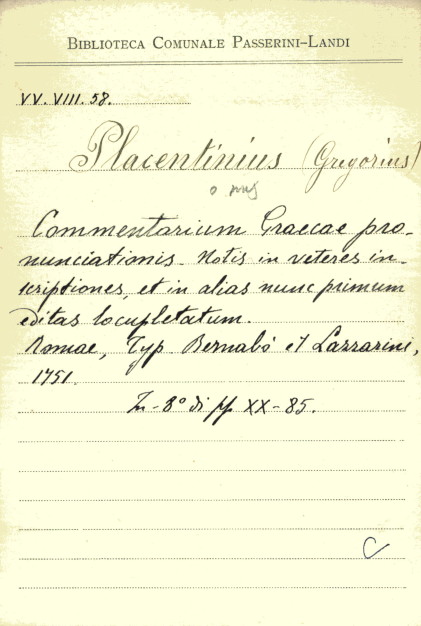 BIBLIOTECA COMUNALE PASSERINI-LANDI
VV. VIII. 58.
Placentinius (Gregorius)
Commentarium Graecae pro-
nunciationis. Notis in veteres in-
scriptiones, et in alias nunc primum
editas locupletatum.
Romae, Typ Bernabò et Lazzarini,
1751.
In-8° di pp XX-85.
C